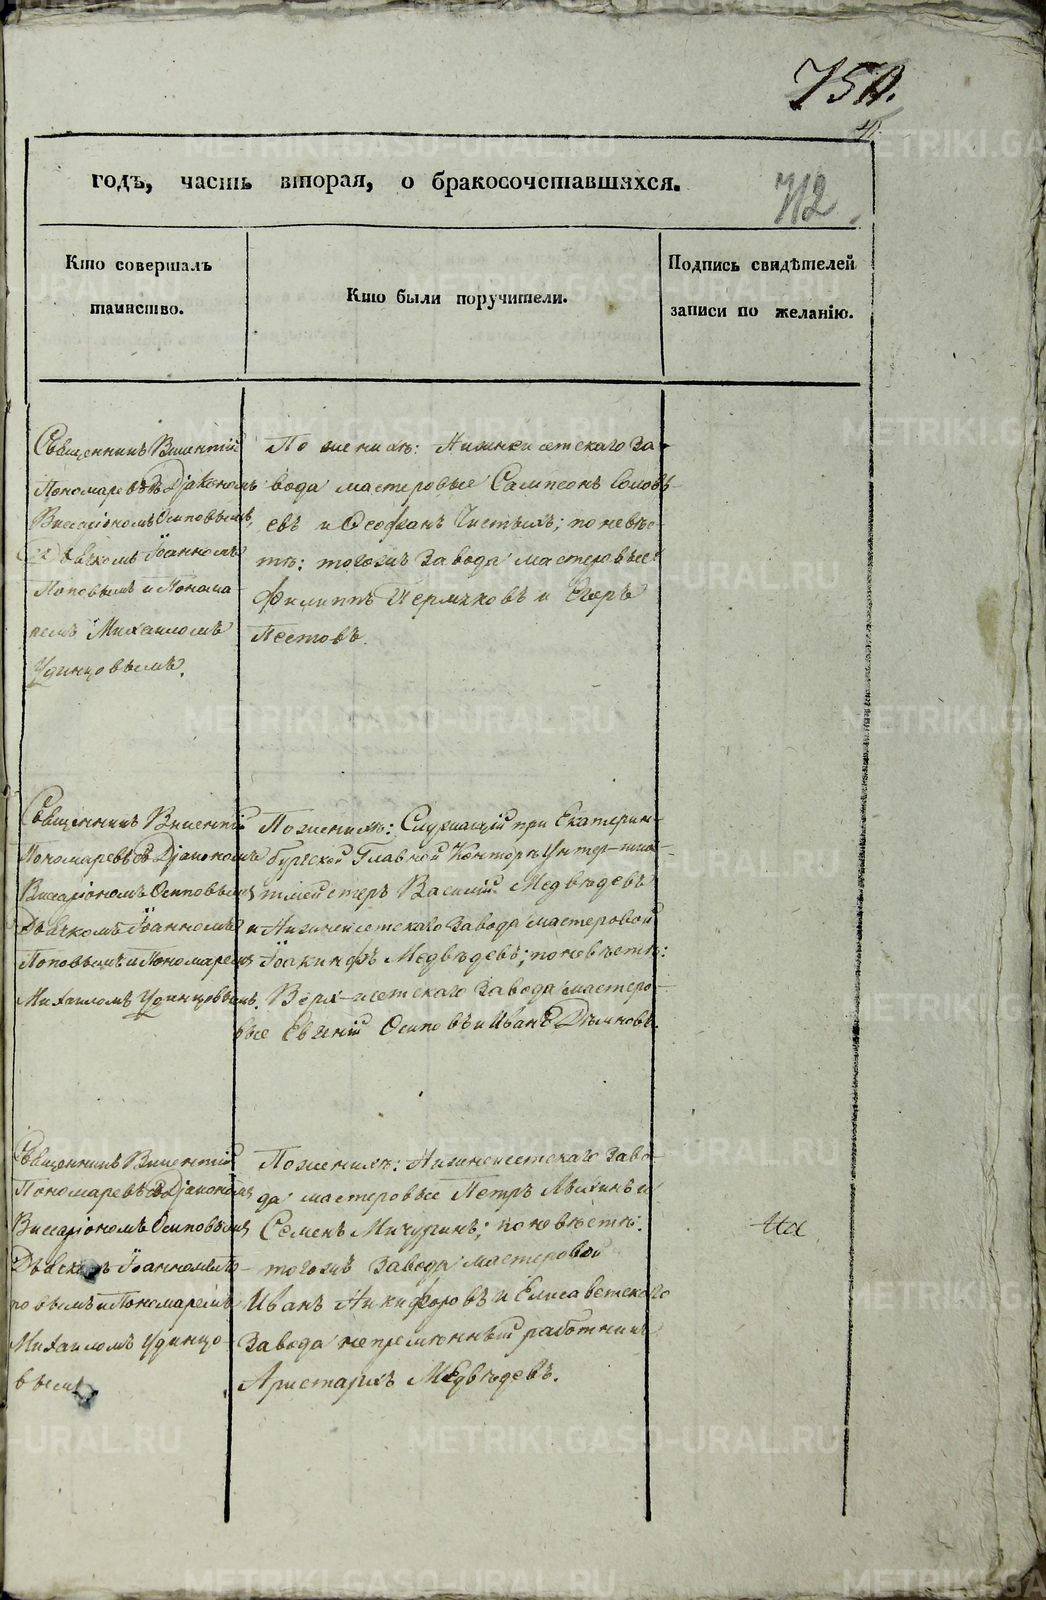 годъ, часть вторая, о бракосочетавшихся.
712
Кто совершалъ
таинство.
Кто были поручители.
Подпись свидѣтелей
записи по желанію.
Священникъ Викентій
Пономаревъ съ Діакономъ
Висаріономъ Осиповымъ,
Дьячкомъ Іоанномъ
Поповымъ и Понома-
ремъ Михаиломъ
Удинцовымъ.
По женихѣ: Нижнеисетскаго За-
вода мастеровые Сампсонъ Соловь-
евъ и Ѳеофанъ Чистыхъ; по невѣс-
тѣ: тогожъ Завода мастеровые
Филиппъ и Егоръ
Пестовъ.
Священникъ Викентій
Пономаревъ съ Діакономъ
Висаріономъ Осиповымъ
Дьячкомъ Іоанномъ
Поповымъ и Пономаремъ
Михаиломъ Удинцовымъ.
По женихѣ: Служащій при Екатерин-
бургской Главной Конторѣ Унтер-ших-
тмейстеръ Василій Медвѣдевъ
и Нижнеисетскаго Завода мастеровой
Іоакинфъ Медвѣдевъ; по невѣстѣ:
Верх-исетскаго Завода мастеро-
вые Евгеній Осиповъ и Иванъ
Священникъ Викентій
Пономаревъ съ Діакономъ
Висаріономъ Осиповымъ
Дьячкомъ Іоанномъ По-
повымъ и Пономаремъ
Михаиломъ Удинцо-
вымъ
По женихѣ: Нижнеисетскаго Заво-
да мастеровые Петръ и
Семенъ Мичуринъ; по невѣстѣ:
тогожъ Завода мастеровой
Иванъ Никифоровъ и Елисаветскаго
Завода непремѣнный работникъ
Аристархъ Медвѣдевъ.
METRIKI.GASO-URAL.RU